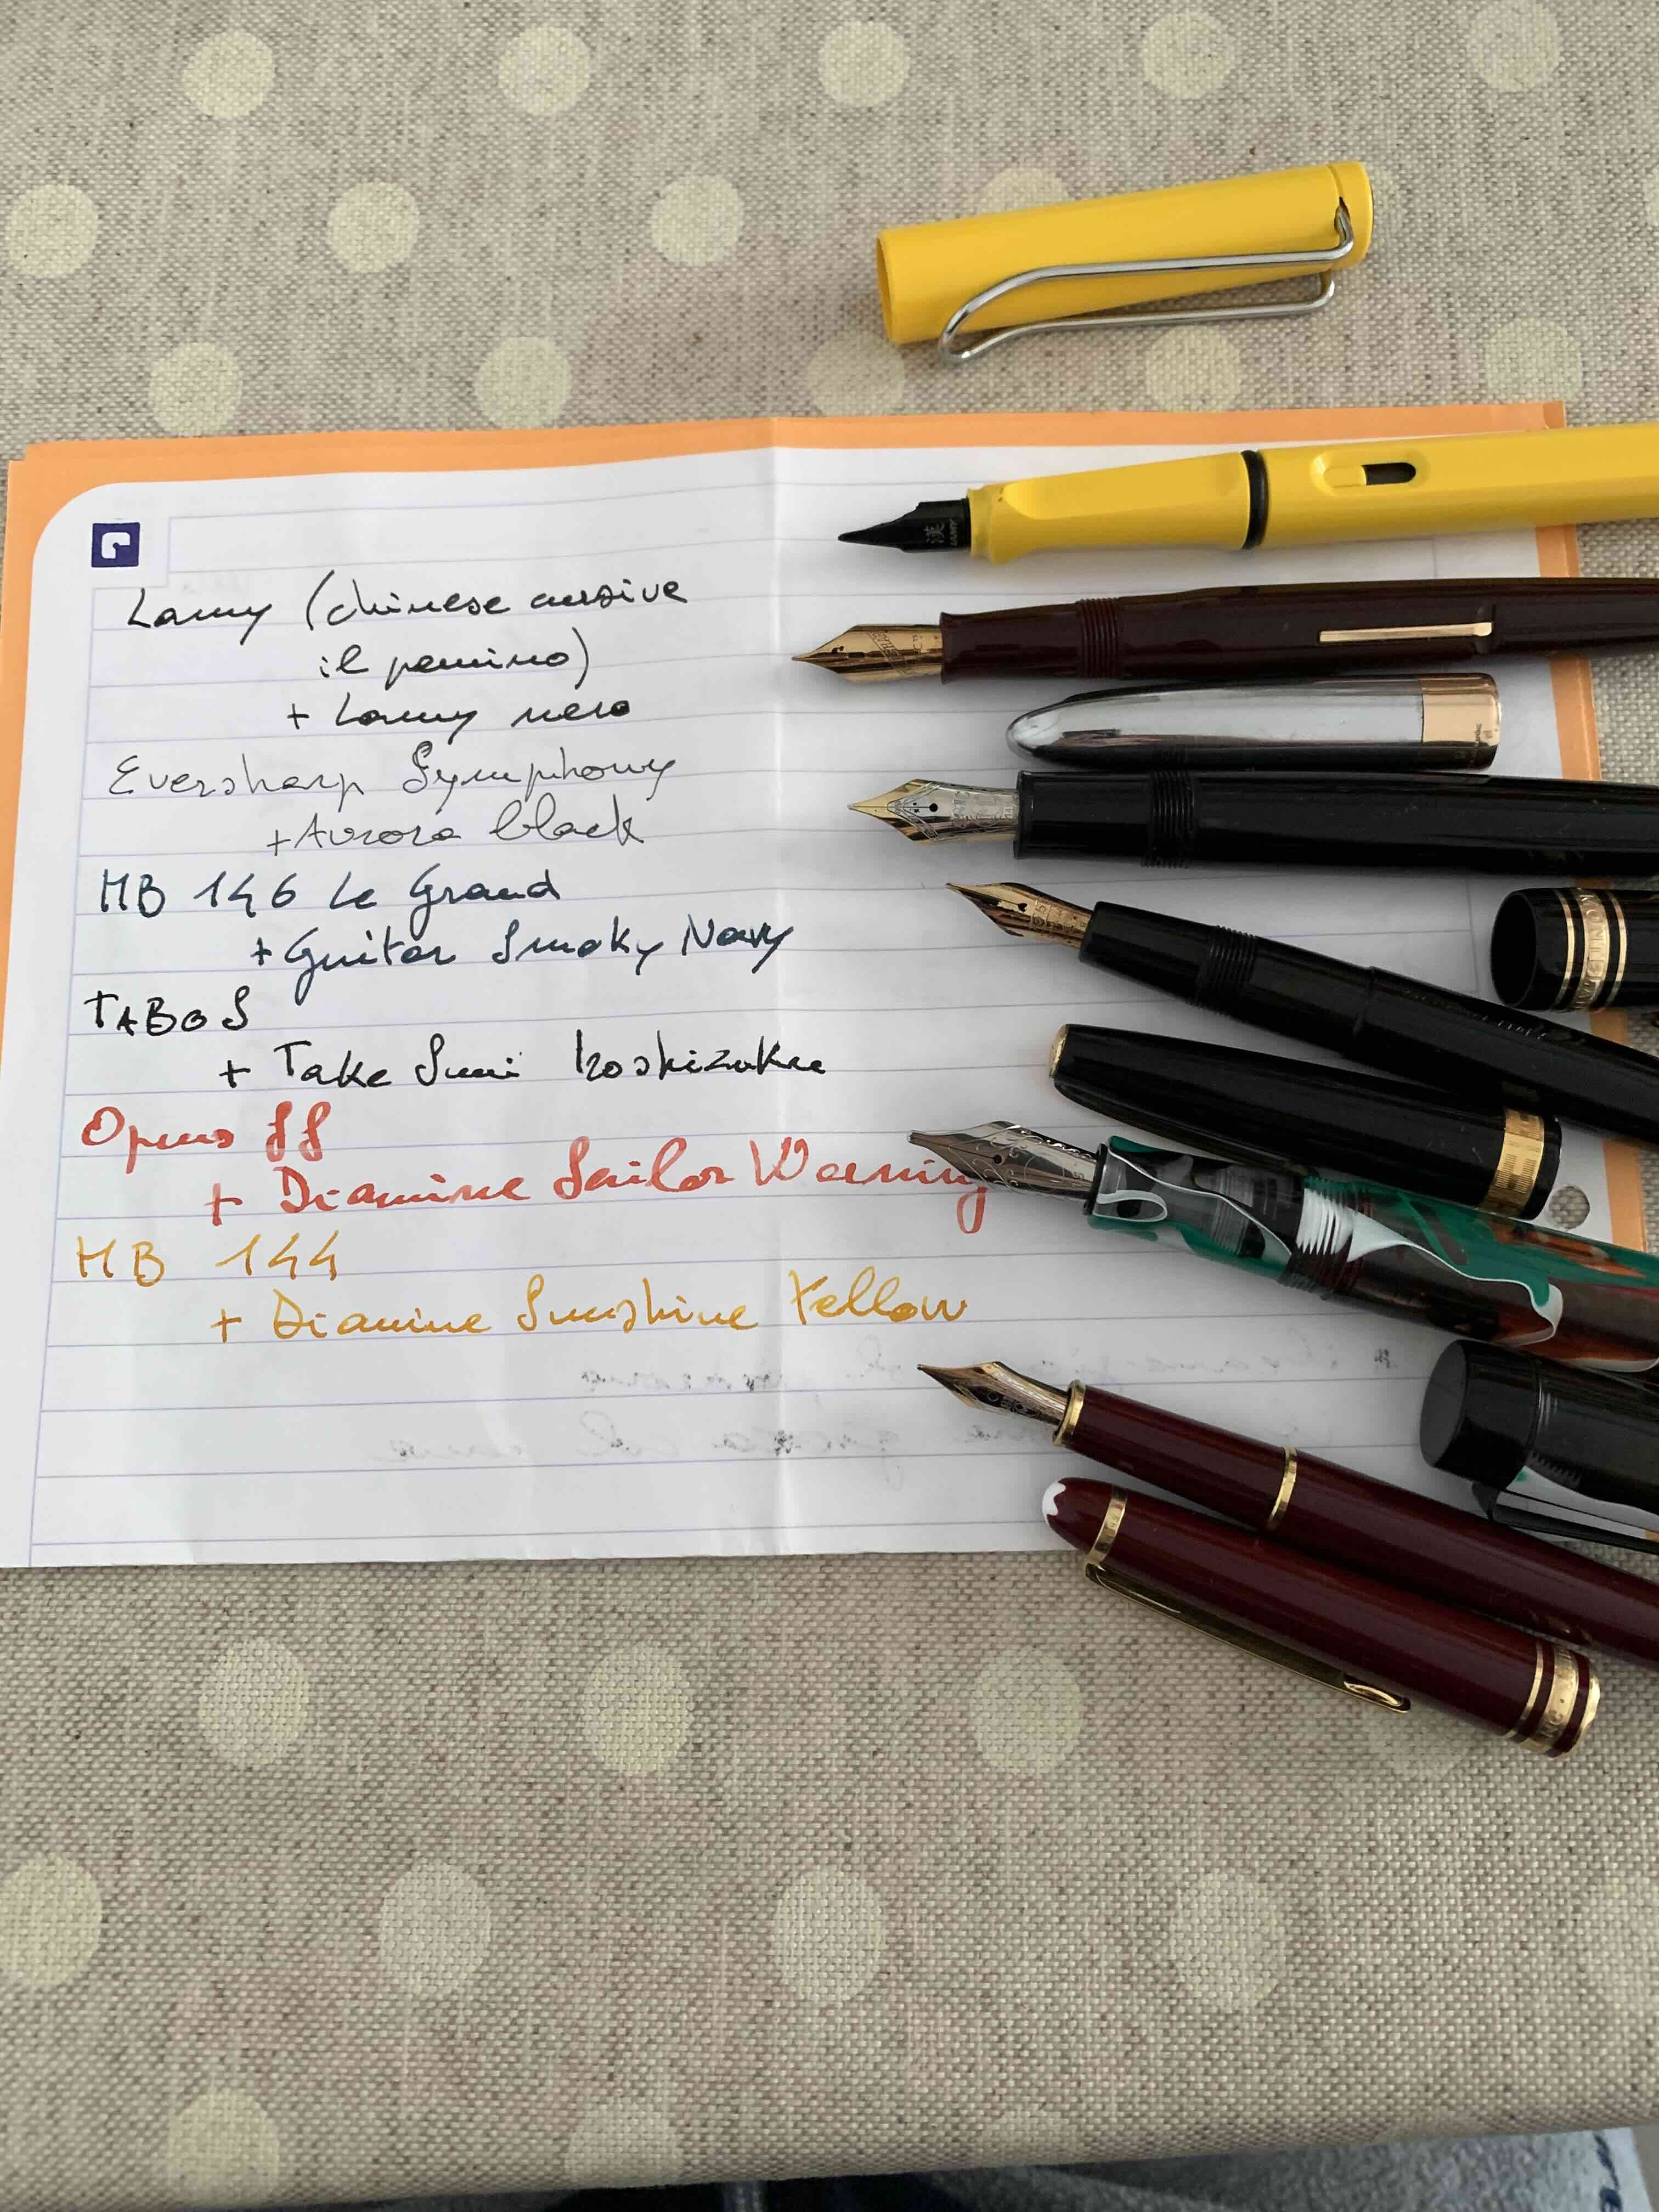 Lamy (chinese cursive
il pennino)
+ Lamy nero
Eversharp Symphony
+ Aurora black
MB 146 Le Grand
+ Guitar Smoky Navy
TABOS
+ Take Sumi Iroshizuku
Opus 88
+ Diamine Sailor Warning
MB 144
+ Diamine Sunshine Yellow
漢
LAMY